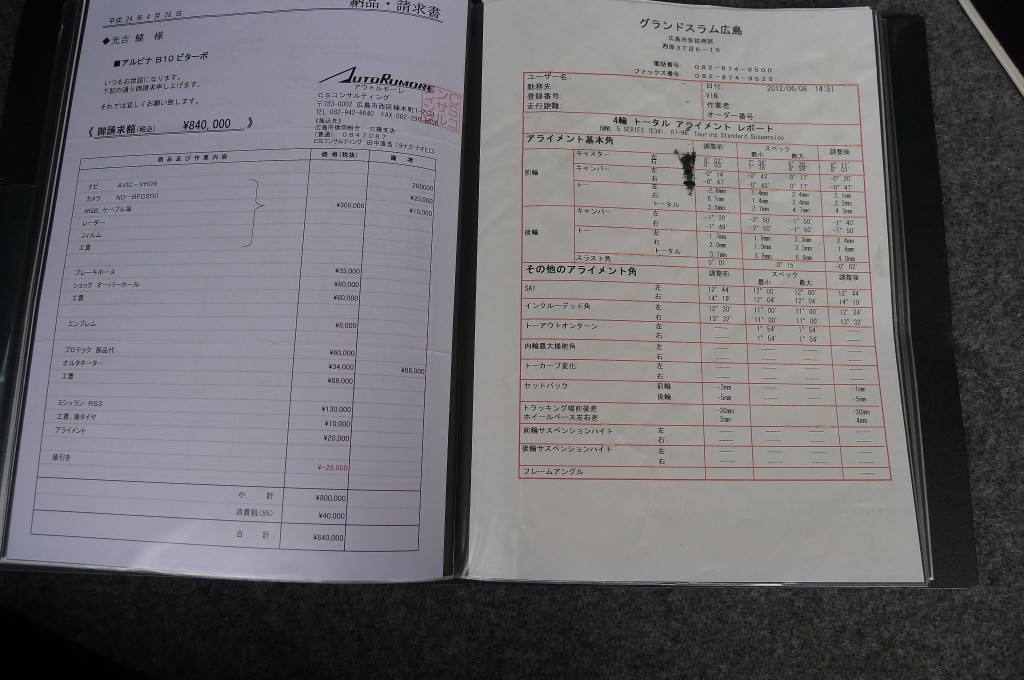 納品・請求書
平成 24 年 4 月 28 日
◆光吉 健 様
■アルピナ B10 ビターボ
いつもお世話になります。
下記の通り御請求申し上げます。
それでは宜しくお願い致します。
《 御請求額(税込) ¥840,000 》
AUTORUMORE
アウトルモーレ
CSコンサルティング
〒733-0002 広島市西区楠木町1-
TEL:082-942-6640 FAX:082-296-
(振込先)
広島市信用組合 三篠支店
(普通) 0647087
CSコンサルティング 田中直浩 (タナカ ナオヒロ)
商品及び作業内容 価格(税抜) 備考
ナビ AVIC-VH09 200000
カメラ ND-BFC200 ¥20,000
RGB、ケーブル等 ¥300,000 ¥15,000
レーダー
フィルム
工賃
ブレーキホース ¥35,000
ショック オーバーホール ¥80,000
工賃 ¥60,000
エンブレム ¥8,000
プロテック 部品代 ¥60,000
オルタネーター ¥34,000 ¥68,000
工賃 ¥88,000
ミシュラン RS3 ¥130,000
工賃、廃タイヤ ¥10,000
アライメント ¥20,000
値引き ¥-25,000
小 計 ¥800,000
消費税(5%) ¥40,000
合 計 ¥840,000
グランドスラム広島
広島市安佐南区
西原3丁目6-15
電話番号: 082-874-9500
ファックス番号: 082-874-9533
ユーザー名: 日付: 2012/06/08 14:51
勤務先: VIN
登録番号: 作業者:
走行距離: オーダー番号
4輪 トータル アライメント レポート
BMW, 5 SERIES (E34), 87-96, Touring Standard Suspension
アライメント基本角 調整前 スペック 調整後
最小 最大
前輪 キャスター 左
右
キャンバー 左 -0° 14' -0° 43' 0° 17' -0° 30'
右 -0° 47' -0° 43' 0° 17' -0° 47'
トー 左 -2.6mm 1.4mm 2.4mm 2.1mm
右 6.1mm 1.4mm 2.4mm 2.2mm
トータル 3.5mm 2.7mm 4.7mm 4.3mm
後輪 キャンバー 左 -1° 38' -2° 50' -1° 50' -1° 40'
右 -1° 49' -2° 50' -1° 50' -1° 50'
トー 左 1.7mm 1.9mm 3.3mm 2.4mm
右 2.0mm 1.9mm 3.3mm 1.6mm
トータル 3.7mm 3.8mm 6.6mm 4.0mm
スラスト角 0° 01' 0° 15' -0° 02'
その他のアライメント角 調整前 スペック 調整後
最小 最大
SAI 左 12° 44' 12° 00' 12° 00' 12° 44'
右 14° 19' 12° 04' 12° 04' 14° 19'
インクルーデッド角 左 12° 30' 11° 00' 11° 00' 12° 24'
右 13° 32' 11° 00' 11° 00' 13° 32'
トーアウトオンターン 左 1° 54' 1° 54'
右 1° 54' 1° 54'
内輪最大操舵角 左
右
トーカーブ変化 左
右
セットバック 前輪 -3mm -1mm
後輪 -5mm -5mm
トラッキング幅前後差 -30mm -30mm
ホイールベース左右差 2mm 4mm
前輪サスペンションハイト 左
右
後輪サスペンションハイト 左
右
フレームアングル